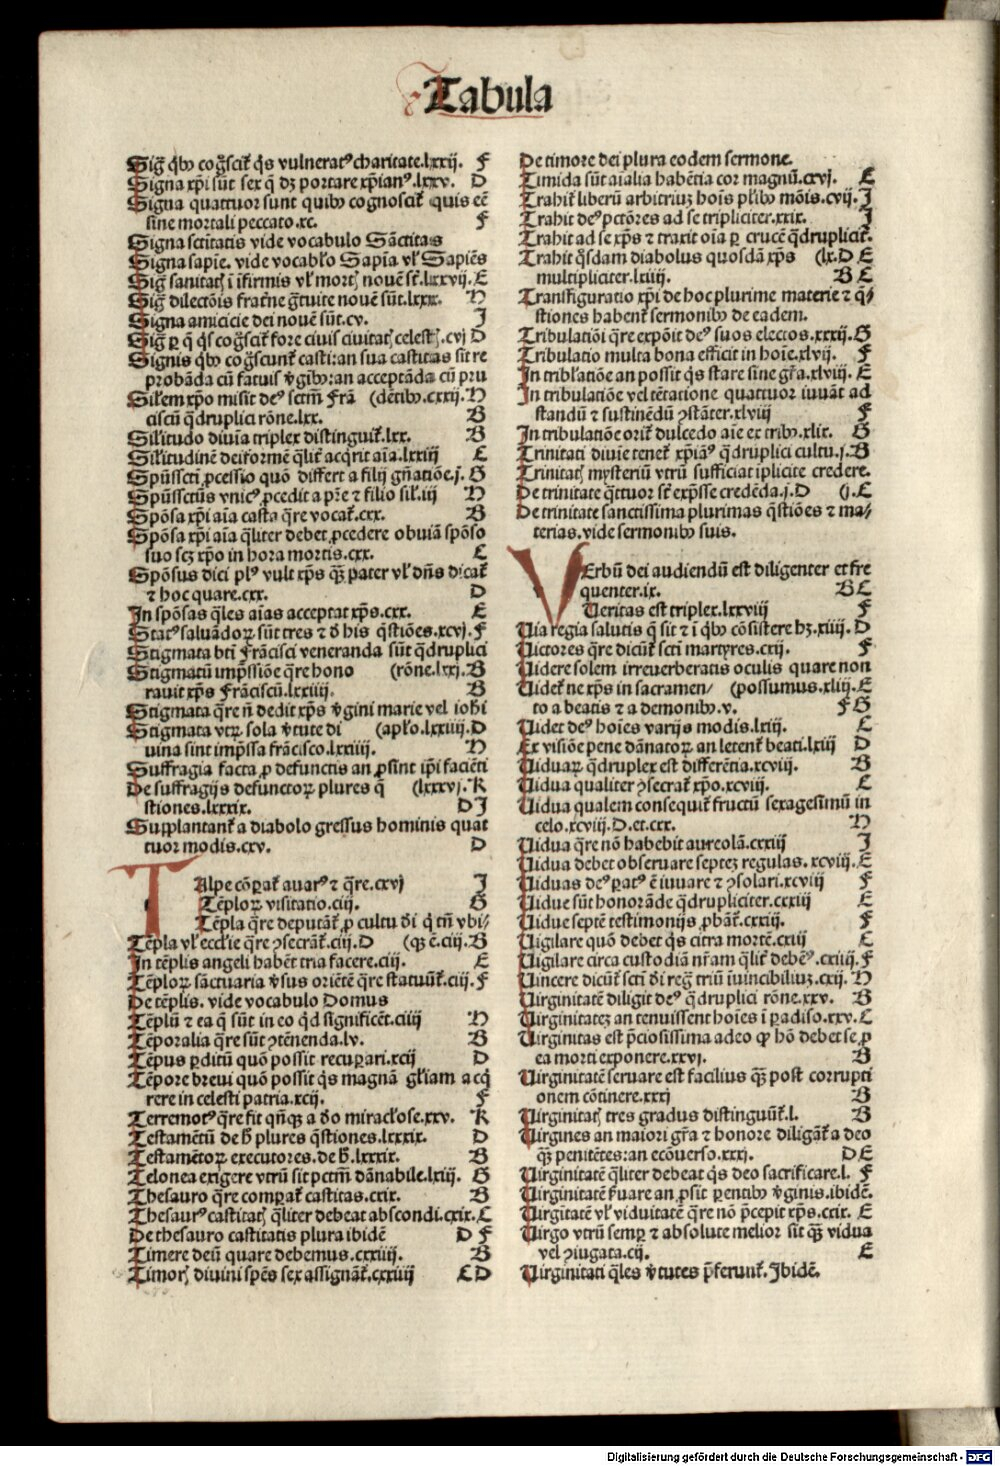 Tabula
Sig̃ q̇bꝰ cog̃scit̃ q̇s vulneratꝰ charitate.lxxij. F
Signa xp̃i sũt sex q̃ dꝫ portare xp̃ianꝰ.lxxv. D
Signa quattuor sunt quibꝰ cognoscit̃ quis eẽ
sine mortali peccato.xc. F
Signa sctitatis vide vocabulo Sãctitas
Signa sapie. vide vocab̃lo Sapia vl̃ Sapiẽs
Sig̃ sanitatꝭ ĩ ĩfirmis vl̃ mortꝭ nouẽ st̃.lxxvij. E
Sig̃ dilectõis fratne g̃tuite nouẽ sũt.lxxx. H
Signa amicicie dei nouẽ sũt.cv. I
Sig̃ ꝑ q̃ q̇s cog̃scit̃ fore ciuis ciuitatꝭ celestꝭ.cvj D
Signis q̇bꝰ cog̃scunt̃ casti:an sua castitas sit re
probãda cũ fatuis v̇gĩbꝰ:an acceptãda cũ pru
Sil̃em xp̃o misit deꝰ sctm̃ Frã (dẽtibꝰ.cxxij. H
ciscũ q̃druplici rõne.lxx. B
Sil̃itudo diuĩa triplex distinguit̃.lxx. B
Sil̃itudinẽ deiformẽ q̃lit̃ acq̇rit aĩa.lxxiij C
Spũssct̃i ꝓcessio quõ differt a filij gñatiõe.j. G
Spũssctũs vnicꝰ ꝓcedit a p̃re ⁊ filio sil̃.iij H
Spõsa xp̃i aĩa casta q̃re vocat̃.cxx. B
Spõsa xp̃i aĩa q̃liter debet ꝓcedere obuiã spõso
suo scꝫ xp̃o in hora mortis.cxx. C
Spõsus dici plꝰ vult xp̃s q̃ꝫ pater vl̃ dñs dicat̃
⁊ hoc quare.cxx. D
In spõsas q̃les aĩas acceptat xp̃s.cxx. E
Statꝰ saluãdoꝝ sũt tres ⁊ d̃ his q̃stiões.xcvj. F
Stigmata bt̃i frãcisci veneranda sũt q̃druplici
Stigmatũ imp̃ssiõe q̃re hono (rõne.lxxj. B
rauit xp̃s frãciscũ.lxxiiij. B
Stigmata q̃re ñ dedit xp̃s v̇gini marie vel ioh̃i
Stigmata vtꝝ sola v̇tute di (apl̃o.lxxiiij. D
uina sint imp̃ssa frãcisco.lxxiiij. H
Suffragia facta ꝓ defunctis an ꝓsint ip̃i faciẽti
De suffragijs defunctoꝝ plures q̃ (lxxxvj. K
stiones.lxxxix. D I
Supplantant̃ a diabolo gressus hominis quat
tuor modis.cxv. D
TAlpe cõꝑat̃ auarꝰ ⁊ q̃re.cxvj I
Tẽploꝝ visitatio.ciij. G
Tẽpla q̃re deputãt̃ ꝓ cultu d̃i q̇ tñ vbi⸗
Tẽpla vl̃ eccl̃ie q̃re ꝯsecrãt̃.ciij. D (qꝫ ẽ.ciij. B
In tẽplis angeli habẽt tria facere.ciij. E
Tẽploꝝ sãctuaria v̇sus oriẽtẽ q̃re statuũt̃.ciij. F
De tẽplis. vide vocabulo Domus
Tẽplũ ⁊ ea q̃ sũt in eo q̇d significẽt.ciiij H
Tẽporalia q̃re sũt ꝯtẽnenda.lv. B
Tẽpus ꝑditũ quõ possit recuꝑari.xcij D
Tẽpore breui quõ possit q̇s magnã gl̃iam acq̇
rere in celesti patria.xcij. F
Terremotꝰ q̃re fit qñqꝫ a d̃o miracl̃ose.xxv. K
Testamẽtũ de h̃ plures q̃stiones.lxxxix. D
Testamẽtoꝝ executores. de h̃.lxxxix. B
Telonea exigere vtrũ sit pctm̃ dãnabile.lxiij. G
Thesauro q̃re comꝑat̃ castitas.cxix. B
Thesaurꝰ castitatꝭ q̃liter debeat abscondi.cxix. C
De thesauro castitatis plura ibidẽ D F
Timere deũ quare debemus.cxxiiij. B
Timorꝭ diuini sp̃es sex assignãt̃.cxxiiij C D
De timore dei plura eodem sermone.
Timida sũt aĩalia habẽtia cor magnũ.cxvj. E
Trahit̃ liberũ arbitriuꝫ hoĩs pl̃ibꝰ mõis.cvij. I
Trahit deꝰ pctõres ad se tripliciter.xxix. I
Trahit ad se xp̃s ⁊ traxit oĩa ꝑ crucẽ q̃druplicit̃.
Trahit q̃sdam diabolus quosdã xp̃s (lx. D E
multipliciter.lxiiij. B C
Transfiguratio xp̃i de hoc plurime materie ⁊ q̃⸗
stiones habent̃ sermonibꝰ de eadem.
Tribulatiõi q̃re expõit deꝰ suos electos.xxxij. G
Tribulatio multa bona efficit in hoĩe.xlvij. F
In tribl̃atiõe an possit q̇s stare sine gr̃a.xlviij. E
In tribulatiõe vel tẽtatione quattuor iuuãt ad
standũ ⁊ sustinẽdũ ꝯstãter.xlviij F
In tribulatiõe orit̃ dulcedo aĩe ex tribꝰ.xlix. G
Trinitati diuĩe tenet̃ xp̃iãꝰ q̃druplici cultu.j. B
Trinitatꝭ mysteriũ vtrũ sufficiat ĩplicite credere.
De trinitate q̃ttuor st̃ exp̃sse credẽda.j. D (j. C
De trinitate sanctissima plurimas q̃stiões ⁊ ma⸗
terias. vide sermonibꝰ suis.
VErbũ dei audiendũ est diligenter et fre
quenter.ix. B C
Veritas est triplex.lxxviij F
Via regia salutis q̃ sit ⁊ ĩ q̇bꝰ cõsistere hꝫ.xiiij. D
Victores q̃re dicũt̃ scti martyres.cxij. F
Videre solem irreuerberatis oculis quare non
Videt̃ ne xp̃s in sacramen⸗ (possumus.xliij. E
to a beatis ⁊ a demonibꝰ.v. F G
Videt deꝰ hoĩes varijs modis.lxiij. C
Ex visiõe pene dãnatoꝝ an letent̃ beati.lxiij D
Viduaꝝ q̃druplex est differẽtia.xcviij. B
Vidua qualiter ꝯsecrat̃ xp̃o.xcviij. C
Vidua qualem consequit̃ fructũ sexagesimũ in
celo.xcviij. D. et.cxx. H
Vidua q̃re nõ habebit aureolã.cxxiij I
Vidua debet obseruare septeꝫ regulas. xcviij. E
Viduas deꝰ paratꝰ ẽ iuuare ⁊ ꝯsolari.xcviij F
Vidue sũt honorãde q̃drupliciter.cxxiij E
Vidue septẽ testimonijs ꝓbãt̃.cxxiij. F
Vigilare quõ debet q̇s citra mortẽ.cxiij C
Vigilare circa custodiã nr̃am q̃lit̃ debẽꝰ.cxiiij. F
Vincere dicũt̃ scti d̃i regꝭ triũ ĩuincibiliuꝫ.cxij. H
Virginitatẽ diligit deꝰ q̃druplici rõne.xxv. B
Virginitateꝫ an tenuissent hoĩes ĩ ꝑadiso.xxv. C
Virginitas est p̃ciosissima adeo ꝙ hõ debet se ꝓ
ea morti exponere.xxvj. B
Virginitatẽ seruare est facilius q̃ꝫ post corrupti
onem cõtinere.xxxj B
Virginitatꝭ tres gradus distinguũt̃.l. B
Virgines an maiori gr̃a ⁊ honore diligãt̃ a deo
q̃ꝫ penitẽtes:an ecõuerso.xxxj. D E
Virginitatẽ q̃liter debeat q̇s deo sacrificare.l. F
Virginitatẽ s̃uare an ꝓsit ꝑentibꝰ v̇ginis.ibidẽ.
Virgĩtatẽ vl̃ viduitatẽ q̃re nõ p̃cepit xp̃s.cxix. E
Virgo vtrũ semꝑ ⁊ absolute melior sit q̃ꝫ vidua
vel ꝯiugata.cij. E
Virginitati q̃les v̇tutes p̃ferunt̃. Ibidẽ.
Digitalisierung gefördert durch die Deutsche Forschungsgemeinschaft - DFG